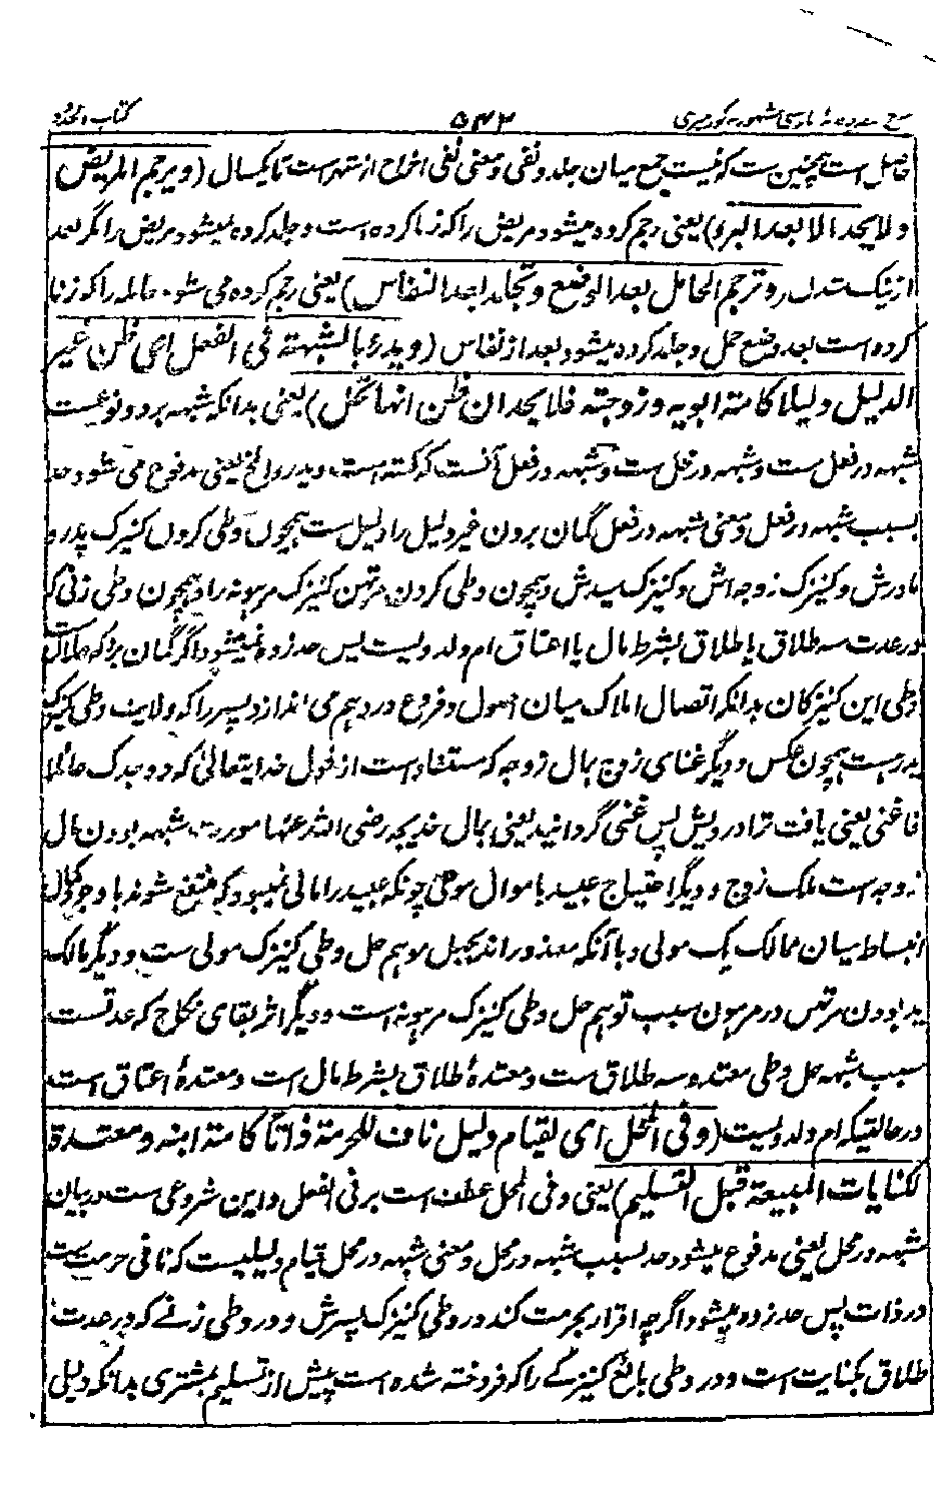 کتاب الحدود ۵۴۲ شرح وقایه فارسی مشهور به کور میری
حاصل است همچنین ست که نیست جمع میان جلد و نفی و معنی نفی اخراج از شهر است تا یکسال (ویرجم المریض
ولا یحد الا بعد البرء) یعنی رجم کرده میشود مریض را که زنا کرده است و جلد کرده نمیشود مریض را مگر بعد
از نیک شدن (وترجم الحامل بعد الوضع وتجلد بعد النفاس) یعنی رجم کرده می شود حامله را که زنا
کرده است بعد وضع حمل و جلد کرده میشود بعد از نفاس (ویدرئ بالشبهة فی الفعل ای ظن غیر
الدلیل دلیلا کامة ابویه وزوجته فلا یحد ان ظن انها تحل) یعنی بدانکه شبهه بر دو نوعست
شبهه در فعل ست و شبهه در محل ست و شبهه در فعل آنست که گفته است ویدرء الخ یعنی مدفوع می شود حد
بسبب شبهه در فعل و معنی شبهه در فعل گمان بردن غیر دلیل را دلیل ست همچون وطی کردن کنیزک پدر و
مادرش و کنیزک زوجه اش و کنیزک سیدش و همچون وطی کردن مرتهن کنیزک مرهونه را و همچون وطی زنی که
در عدت سه طلاق یا طلاق بشرط مال یا اعتاق ام ولد ویست پس حد زده نمیشود اگر گمان برد که حلالست
وطی این کنیزکان بدانکه اتصال املاک میان اصول و فروع در وهم می اندازد پسر را که ولایت وطی کنیزک
پدر هست همچون عکس و دیگر غنای زوج بمال زوجه که مستفاد است از قول خدایتعالی که ووجدک عائلا
فاغنی یعنی یافت ترا درویش پس غنی گردانید یعنی بمال خدیجه رضی الله عنها مورث شبهه بودن مال
زوجه است ملک زوج و دیگر احتیاج عبید باموال مولی چونکه عبید را مالی نمیبود که منتفع شوند با وجود کمال
انبساط میان ممالک یک مولی و با آنکه معذور اند بجهل موهم حل وطی کنیزک مولی ست و دیگر مالک
ید بودن مرتهن در مرهون سبب توهم حل وطی کنیزک مرهونه است و دیگر اثر بقای نکاح که عدتست
سبب شبهه حل وطی معتده سه طلاق ست و معتدهٔ طلاق بشرط مال است و معتدهٔ اعتاق است
در حالتیکه ام ولد ویست (وفی المحل ای لقیام دلیل ناف للحرمة ذاتا کامة ابنه ومعتدة
لکنایات المبیعة قبل التسلیم) یعنی وفی المحل عطف است بر فی الفعل و این شروعی ست در بیان
شبهه در محل یعنی مدفوع میشود حد بسبب شبهه در محل و معنی شبهه در محل قیام دلیلیست که نافی حرمت ست
در ذات پس حد زده نمیشود اگر چه اقرار بحرمت کند در وطی کنیزک پسرش و در وطی زنے که در عدت
طلاق بکنایت است و در وطی بائع کنیزکے را که فروخته شده است پیش از تسلیم بمشتری بدانکه دلیل